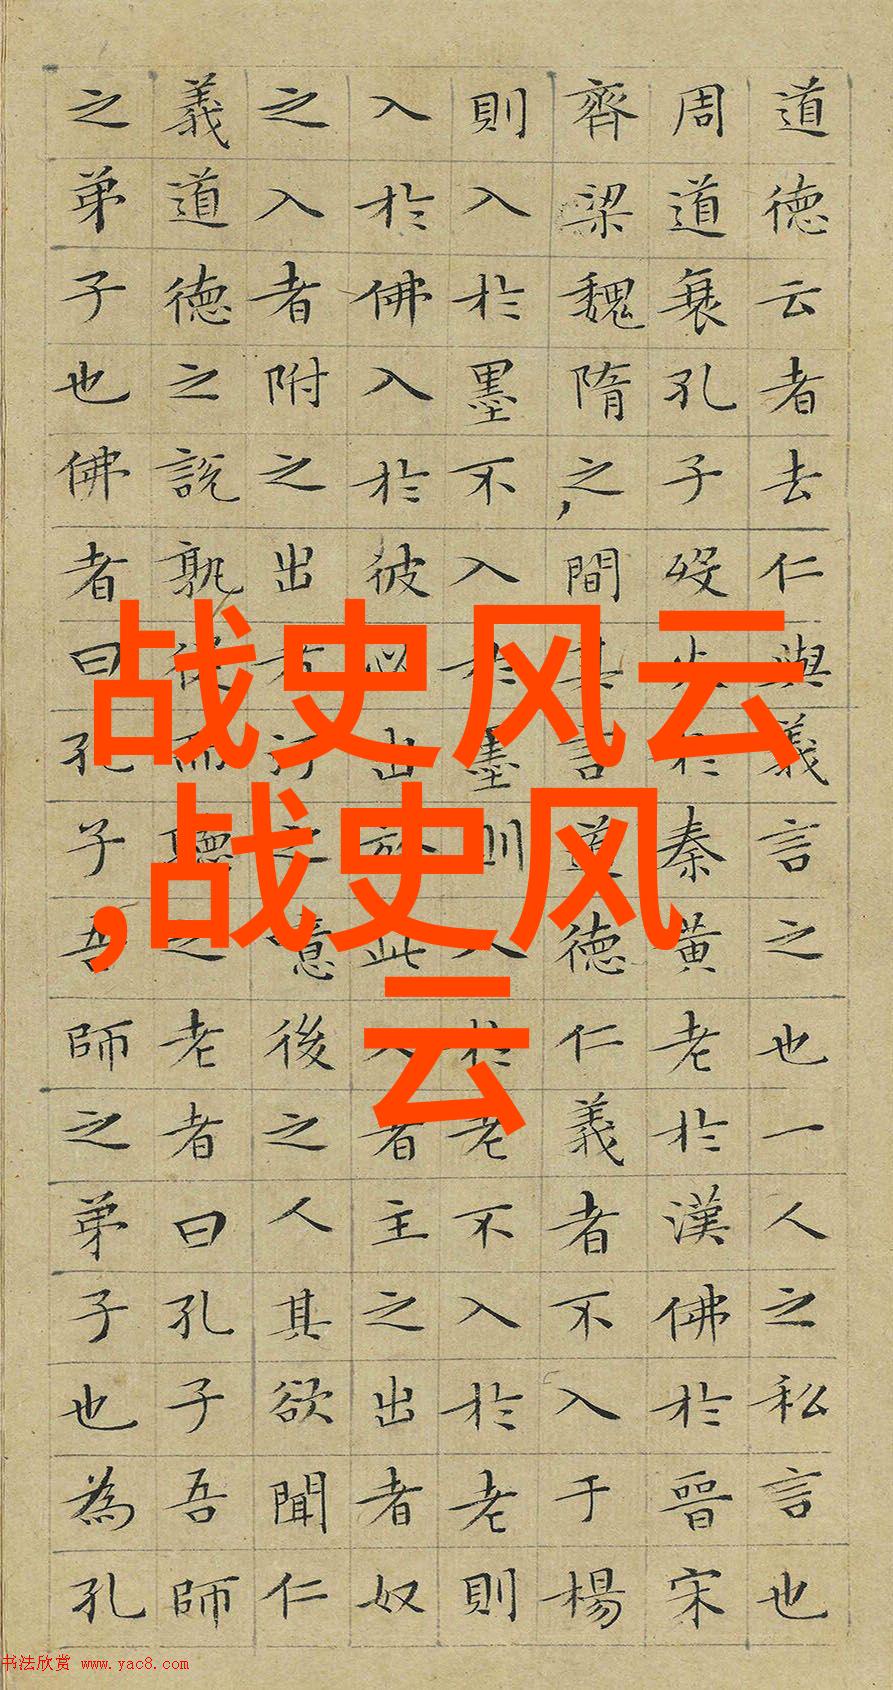 战史风云
,战史风
云
道德云者去仁與義言之也一人之私言也
周道衰孔子歿火於秦黃老於漢佛於晉宋
齊梁魏隋之間其言道德仁義者不入于楊
則入於墨不入於墨則入於老不入於老則
入於佛入於彼必出於此入者主之出者奴
之入者附之出者汙之噫後之人其欲聞仁
義道德之說孰從而聽之老者曰孔子吾師
之弟子也佛者曰孔子吾師之弟子也為孔
书法欣赏 www.yac8.com